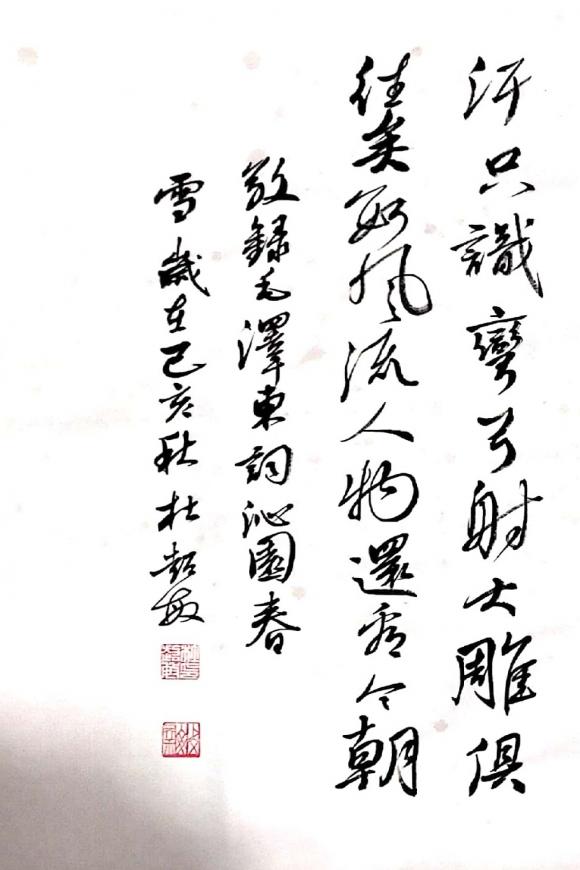 汗只識彎弓射大雕俱
往矣數風流人物還看今朝
敬錄毛澤東詞沁園春
雪歲在己亥秋杜敏